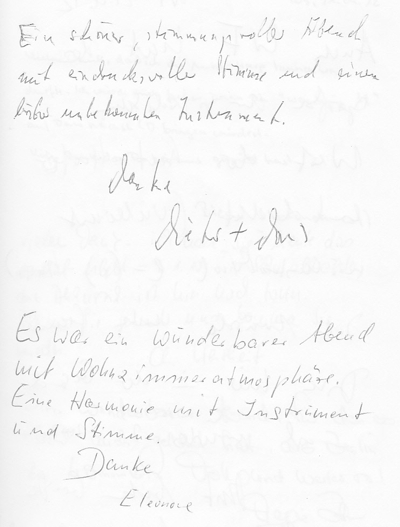 Ein schöner, stimmungsvoller Abend
mit eindrucksvoller Stimme und einem
bisher unbekannten Instrument.
Danke
Dieter + Doris
Es war ein wunderbarer Abend
mit Wohnzimmeratmosphäre.
Eine Harmonie mit Instrument
und Stimme.
Danke
Eleonore